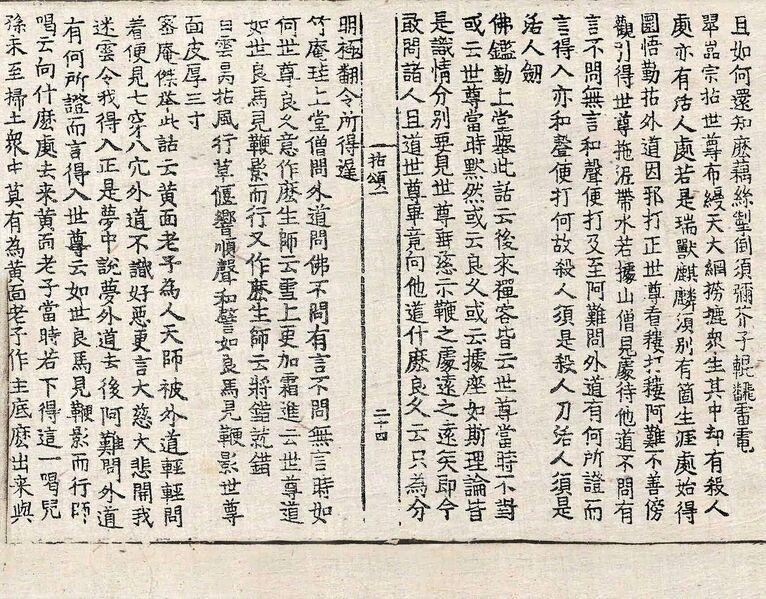 且如何還知麽藕絲掣倒須彌芥子輥𨏦雷電
翠嵓宗拈世尊布縵天大網撈摝衆生其中却有殺人
處亦有活人處若是瑞獸麒麟須別有箇生涯處始得
圜悟勤拈外道因邪打正世尊看樓打樓阿難不善傍
觀引得世尊拖泥帶水若據山僧見處待他道不問有
言不問無言和聲便打及至阿難問外道有何所證而
言得入亦和聲便打何故殺人須是殺人刀活人須是
活人劒
佛鑑勤上堂擧此話云後來禪客皆云世尊當時不對
或云世尊當時黙然或云良久或云據座如斯理論皆
長識情分別要見世尊垂慈示鞭之處遠之遠矣即今
敢問諸人且道世尊畢竟向他道什麽良久云只為分
拈頌二
二十四
明極翻令所得遅
竹庵珪上堂僧問外道問佛不問有言不問無言時如
何世尊良久意作麽生師云雪上更加霜進云世尊道
如世良馬見鞭影而行又作麽生師云將錯就錯
白雲昺拈風行草偃響順聲和譬如良馬見鞭影世尊
面皮厚三寸
密庵傑擧此話云黄面老子為人天師被外道輕輕問
着便見七穿八穴外道不識好惡更言大慈大悲開我
迷雲令我得入正是夢中說夢外道去後阿難問外道
有何所證而言得入世尊云如世良馬見鞭影而行師
喝云向什麽處去來黄面老子當時若下得這一喝兒
孫未至掃土衆中莫有為黄面老子作主底麽出來與